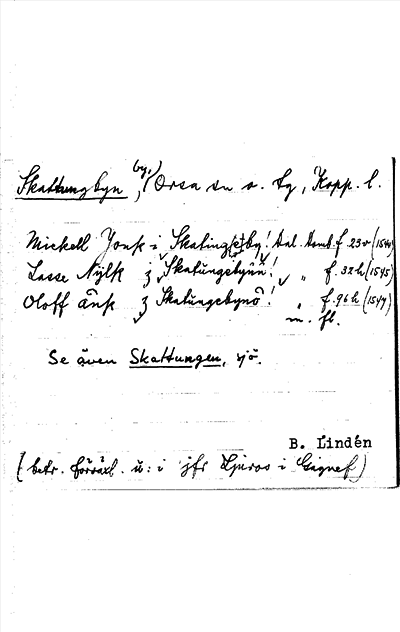 Skattungbyn, by, Orsa sn o. tg, Kopp. l.
Mickell Jonß i Skatingeby! Dal. Domb. f. 23v (1544)
Lasse Nylß ӡ Skatŭngebÿnn! „ „ f. 32h (1545)
Oloff ånß ӡ Skatŭngebynö! „ f. 96h (1547)
m. fl.
Se även Skattungen, sjö.
B. Lindén
(betr. förväxl. u : i jfr Djuros i Gagnef)